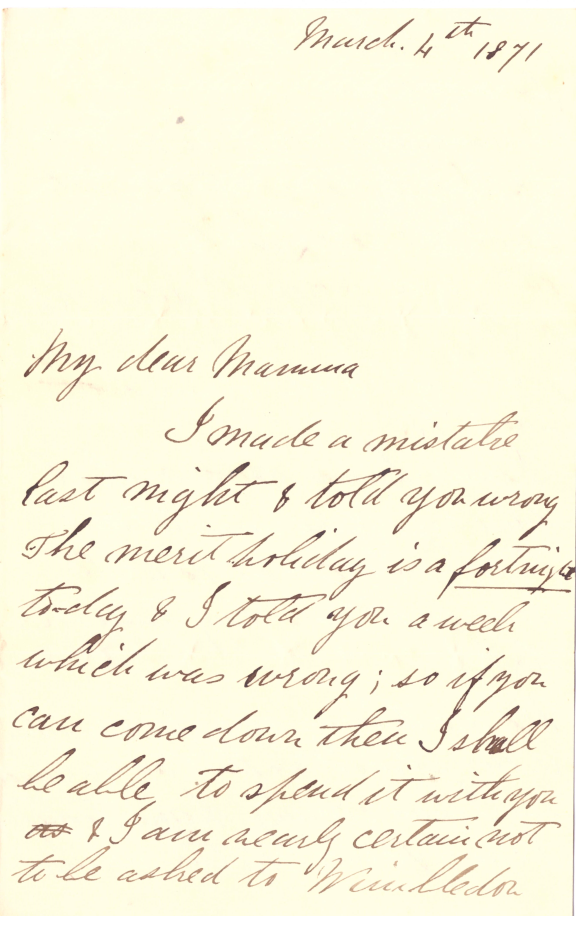 March. 4th 1871
My dear Mamma
I made a mistake
last night & told you wrong
The merit holiday is a fortnight
to-day & I told you a week
which was wrong; so if you
can come down then I shall
be able to spend it with you
as & I am nearly certain not
to be asked to Wimbledon